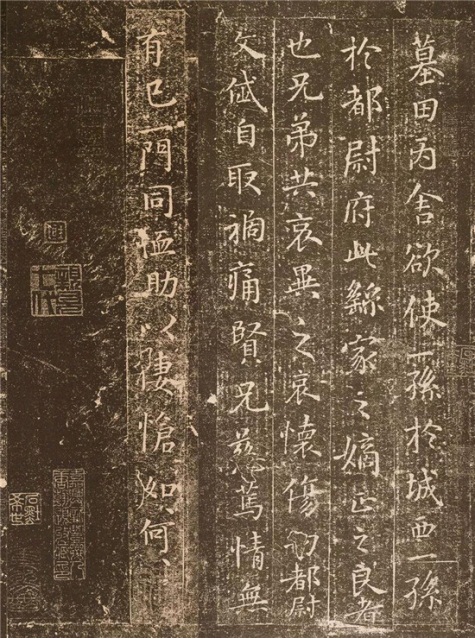 墓田丙舍欲使一孫於城西一孫
於都尉府此繇家之嫡正之良者
也兄弟共哀異之哀懷傷切都尉
文岱自取禍痛賢兄慈篤情無
有已一門同恤助以悽愴如何、